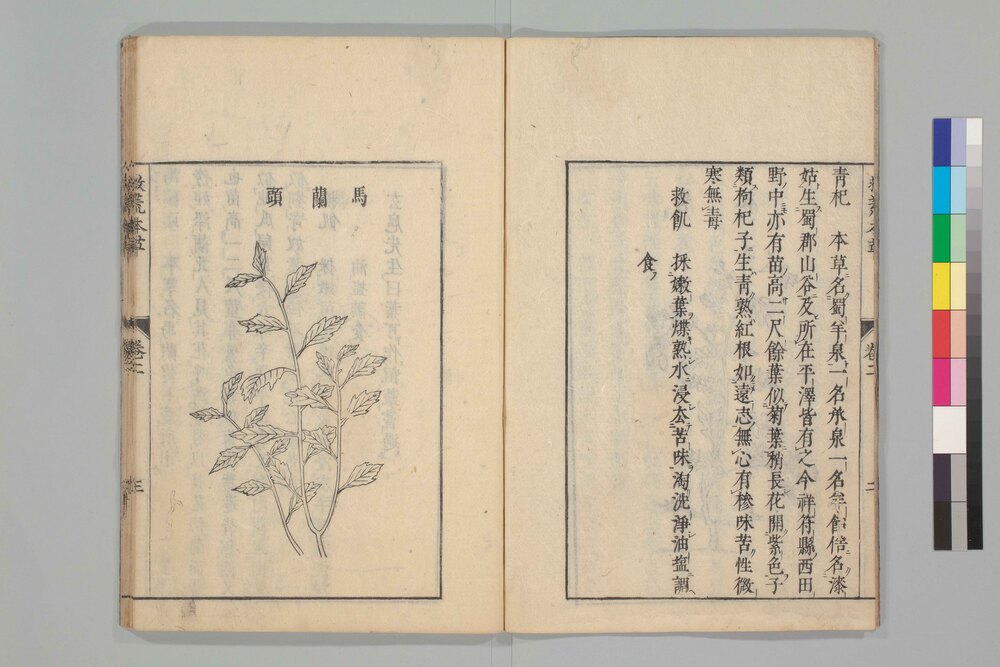 青杞　本草名蜀羊泉一名羊泉一名羊飴俗名漆
姑生蜀郡山谷及所在平澤皆有之今祥符縣西田
野中亦有苗高二尺餘葉似菊葉稍長花開紫色子
類枸杞子生青熟紅根如遠志無心有糝味苦性微
寒無毒
救飢　採嫩葉煠熟水浸去苦味淘洗淨油鹽調
食
卷二
二
馬蘭頭
救荒本草
卷二
三